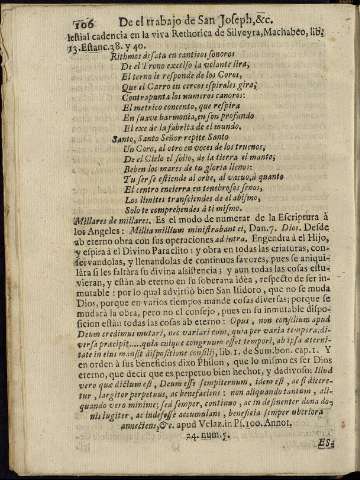 106 De el trabajo de San Joseph,&c.
lestial cadencia en la viva Rethorica de Silveyra, Machabeo, lib.
13. Estanc. 38. y 40.
Rithmos desata en cantivos sonoros
De el Trono excelso la volante lira,
El torno le responde de los Coros,
Que el Carro en cercos espirales gira;
Contrapunta los numeros canoros:
El metrico concento, que respira
En suave harmonia, en son profundo
El exe de la fabrica de el mundo.
Santo, Santo Señor repite Santo
Un Coro, al otro en voces de los truenos,
De el Cielo el solio, de la tierra el manto;
Beben los mares de tu gloria llenos:
Tu ser se estiende al orbe, al vacuo, à quanto
El centro encierra en tenebrosos senos,
Los limites transciendes de el abismo,
Solo te comprehendes à ti mismo.
Millares de millares. Es el modo de numerar de la Escriptura à
los Angeles: Millia millium ministrabant ei, Dan. 7. Dios. Desde
ab eterno obra con sus operaciones ad intra. Engendra à el Hijo,
y espira à el Divino Paraclito: y obra en todas las criaturas, con-
servandolas, y llenandolas de continuos favores, pues se aniqui-
làra si les faltàra su divina assistencia; y aun todas las cosas estu-
vieran, y estàn ab eterno en su soberana idea, respecto de ser in-
mutable: por lo qual advirtiò bien San Isidoro, que no se muda
Dios, porque en varios tiempos mande cosas diversas; porque se
mudarà la obra, pero no el consejo, pues en su inmutable dispo-
sicion estàn todas las cosas ab eterno: Opus, non consilium apud
Deum credimus mutari, nec variari eum, quia per varia tempora, di-
versa præcipit.....quia cuique congruum esset tempori, ab ipsa æterni-
tate in eius mansit dispositione consilij, lib. 1. de Sum. bon. cap. 1. Y
en orden à sus beneficios dixo Philon, que lo mismo es ser Dios
eterno, que decir que es perpetuo bien hechor, y dadivoso: Illud
vero que dictum est, Deum esse sempiternum, idem est, ac si dicere-
tur, largitor perpetuus, ac benefaciens: non aliquando tantum, ali-
quando vero minime; sed semper, continuo, ac in desinenter dona do-
nis lugiter, ac indefesse accumulans, beneficia semper ulteriora
annectens, &c. apud Velaz. in Ps. 100. Annot.
24. num. 5.
ES-